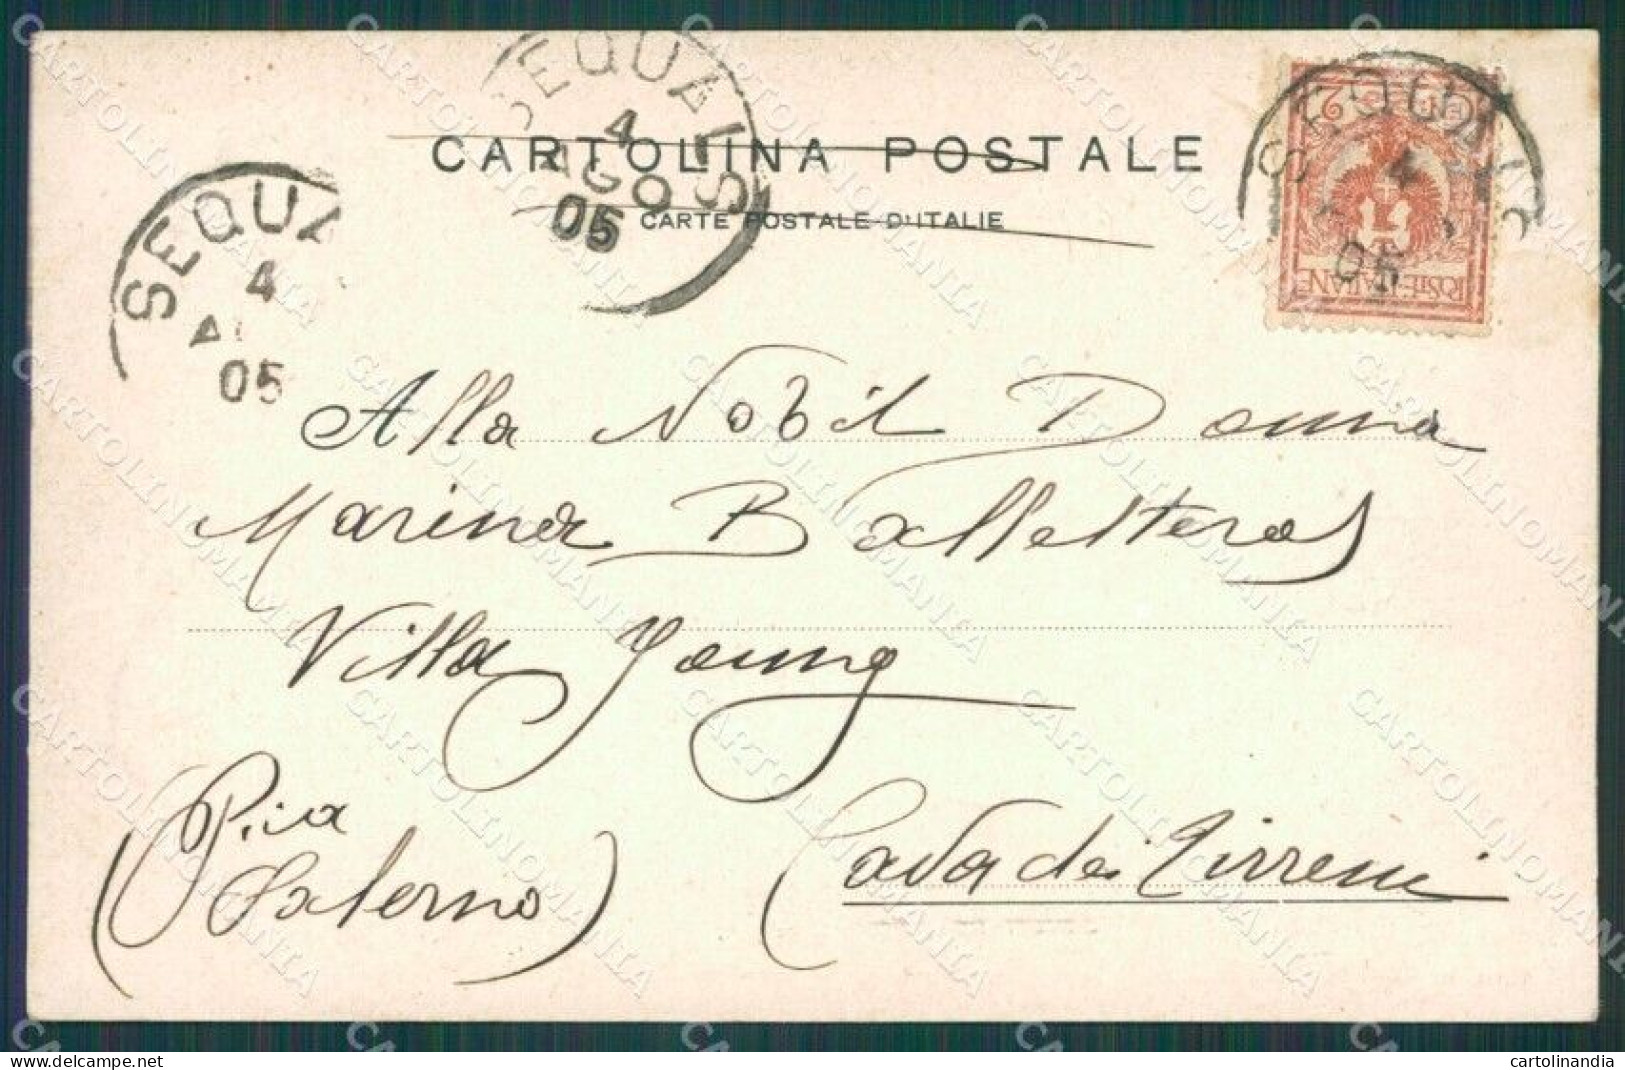 SEQUALS
4
AGO
05
CARTOLINA POSTALE
CARTE POSTALE D'ITALIE
SEQUA
4
05
SEQUALS
4
05
CENT. 2
POSTE ITALIANE
Alla Nobil Donna
Marina Ballesteros
Villa Young
(P.cia Salerno)
Cava dei Tirreni
CARTOLINOMANIA
cartolinandia